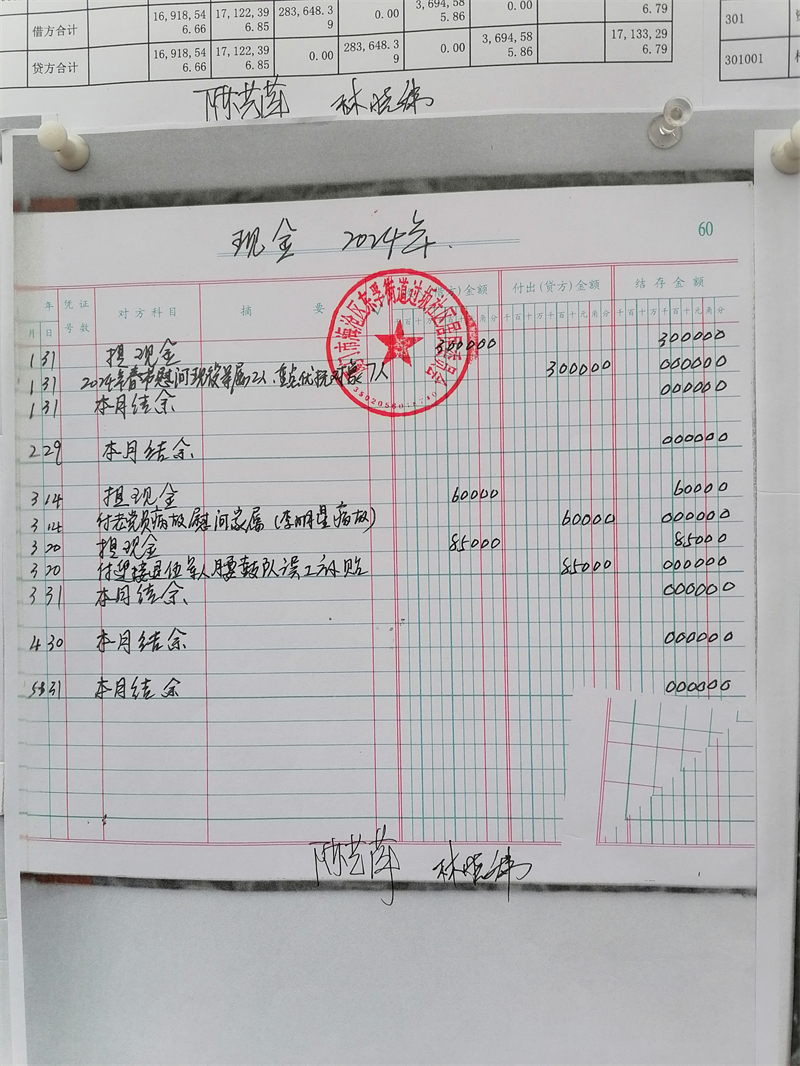 0.00
6.79
借方合计 16,918,546.66 17,122,396.85 283,648.39 0.00 3,694,585.86 0.00
贷方合计 16,918,546.66 17,122,396.85 0.00 283,648.39 0.00 3,694,585.86 17,133,296.79
301
301001
林晓
现金 2024年.
60
年 凭证 对方科目 摘要 (方)金额 付出(贷方)金额 结存金额
月 日 号数 千百十万千百十元角分 千百十万千百十元角分
市海沧区东孚街道过坂社区居民委员会
1 31 提现金 300000 300000
1 31 2024年春节慰问现役军属2人、重点优抚对象7人 300000 000000
1 31 本月结余 000000
2 29 本月结余. 000000
3 14 提现金 60000 60000
3 14 付老党员病故慰问家属(李明星病故) 60000 000000
3 20 提现金 85000 85000
3 20 付迎接退伍军人腰鼓队误工补贴 85000 000000
3 31 本月结余. 000000
4 30 本月结余 000000
5 31 本月结余 000000
林晓